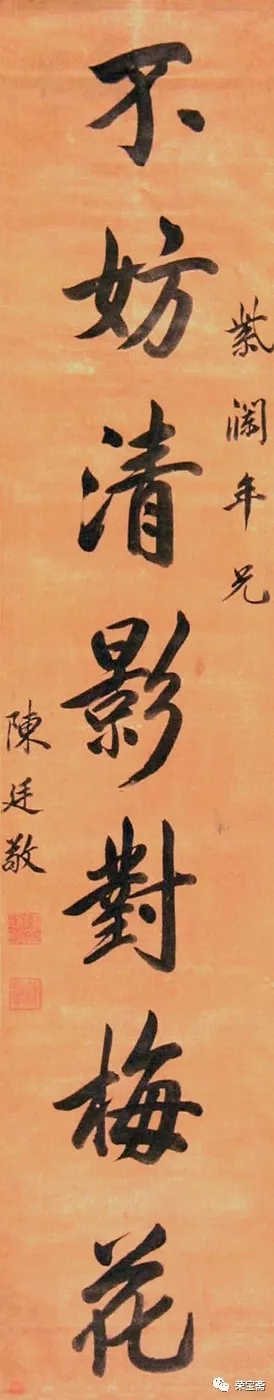 紫澜年兄
不妨清影對梅花
陳廷敬
荣宝斋